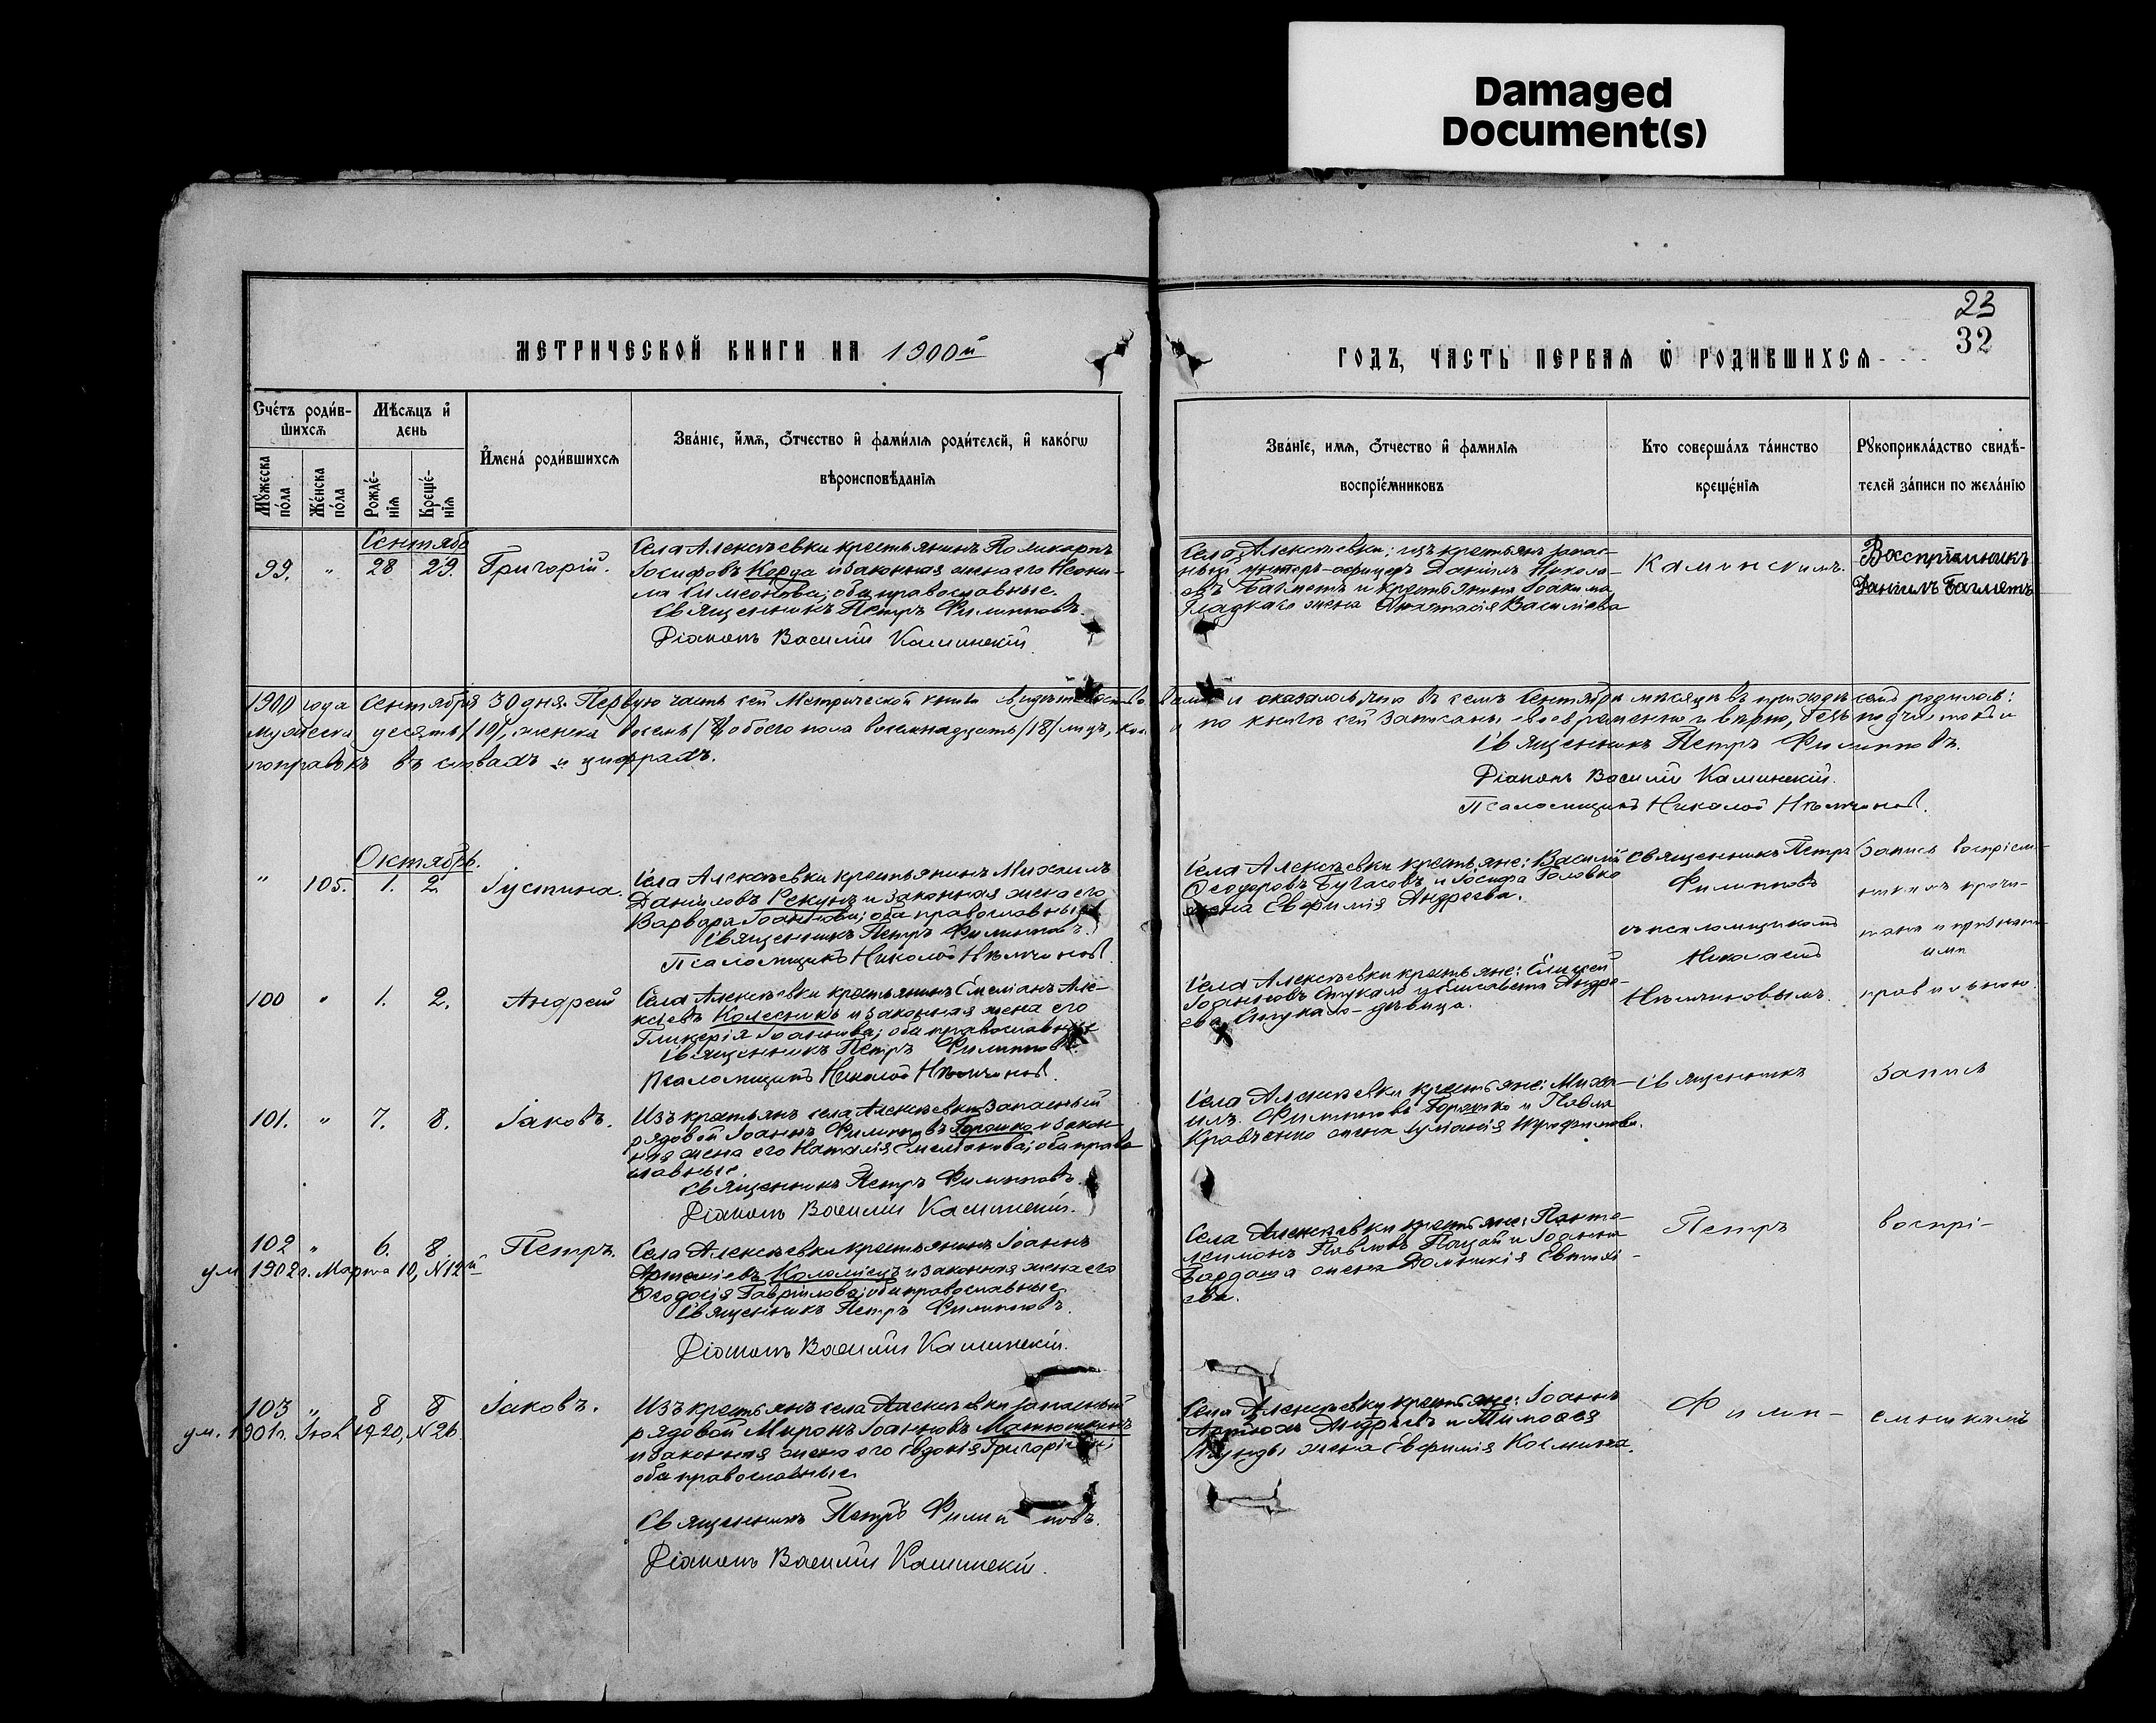 Damaged
Document(s)
23
32
МЕТРИЧЕСКОЙ КНИГИ НА 1900й
ГОДЪ, ЧАСТЬ ПЕРВАЯ Ѡ РОДИВШИХСЯ
Счетъ родив-
шихся
Мѣсяцъ и
день
Мужеска
пола
Женска
пола
Рожде-
нія
Креще-
нія
Имена родившихся
Званіе, имя, отчество и фамилія родителей, и какогѡ
вѣроисповѣданія
Званіе, имя, отчество и фамилія
воспріемниковъ
Кто совершалъ таинство
крещенія
Рукоприкладство свидѣ-
телей записи по желанію
Сентябр
99. " 28 29. Григорій.
Села Алексѣевки крестьянинъ Поликарпъ
Іосифовъ Корда и законная жена его Неони-
ла Симеонова; оба православные.
Священникъ Петръ Филипповъ.
Діаконъ Василій Каминскій.
Села Алексѣевки: изъ крестьянъ запас-
ный унтеръ-офицеръ Даніилъ Никола-
евъ Багметъ и крестьянина Іоакима
Гладкаго жена Анастасія Василіева
Каминскимъ.
Воспріемникъ
Даніилъ Багметъ
1900 года Сентября 30 дня. Первую часть сей Метрической книги
и оказалось, что въ семъ Сентябрѣ мѣсяцѣ въ приходѣ семъ родилось:
мужеска десять /10/, женска восемь /8/ обоего пола восемнадцать /18/ лицъ,
и по книгѣ сей записаны своевременно и вѣрно, безъ подчистокъ и
поправокъ въ словахъ и цифрахъ.
Священникъ Петръ Филипповъ.
Діаконъ Василій Каминскій.
Псаломщикъ Николай
Октябрь.
" 105. 1. 2. Іустина.
Села Алексѣевки крестьянинъ Михаилъ
Даніиловъ Рекунъ и законная жена его
Варвара; оба православные
Священникъ Петръ Филипповъ.
Псаломщикъ Николай
Села Алексѣевки крестьяне: Василій
Ѳеодоровъ и Іосифа Головко
жена Евфимія Андреева.
Священникъ Петръ
Филипповъ
съ псаломщикомъ
Николаемъ
Запись воспріем-
никамъ прочи-
тана и признана
ими
правильною.
100 " 1. 2. Андрей
Села Алексѣевки крестьянинъ Емеліанъ Але-
ксѣевъ Колесникъ и законная жена его
Гликерія Іоаннова; оба православные
Священникъ Петръ Филипповъ.
Псаломщикъ Николай
Села Алексѣевки крестьяне: Елисей
Іоанновъ Стукало и Елисавета Андре-
ева Стукало - дѣвица.
101. " 7. 8. Іаковъ.
Изъ крестьянъ села Алексѣевки запасный
рядовой Іоаннъ Филипповъ Горошко и закон-
ная жена его Наталія Емеліанова; оба право
славные.
Священникъ Петръ Филипповъ.
Діаконъ Василій Каминскій.
Села Алексѣевки крестьяне: Миха-
илъ Филипповъ Горошко и Павла
Кравченко жена Іуліанія Трофимова.
Священникъ
Запись
102 " 6. 8. Петръ.
ум. 1902 г. Марта 10, №12й
Села Алексѣевки крестьянинъ Іоаннъ
Артеміевъ Коломіецъ и законная жена его
Ѳеодосія Гавріилова; оба православные
Священникъ Петръ Филипповъ.
Діаконъ Василій Каминскій.
Села Алексѣевки крестьяне: Панте-
леимонъ Павловъ и Іоанна
жена Домникія Евѳимі-
ева.
Петръ
воспрі-
103 " 8 8 Іаковъ.
ум. 1901 г. №26.
Изъ крестьянъ села Алексѣевки запасный
рядовой Миронъ Іоанновъ Матюшкинъ
и законная жена его Евдокія Григоріева;
оба православные.
Священникъ Петръ Филипповъ.
Діаконъ Василій Каминскій.
Села Алексѣевки крестьяне: Іоаннъ
Андреевъ и Тимоѳея
жена Евфимія Космина.
Филип-
емникамъ